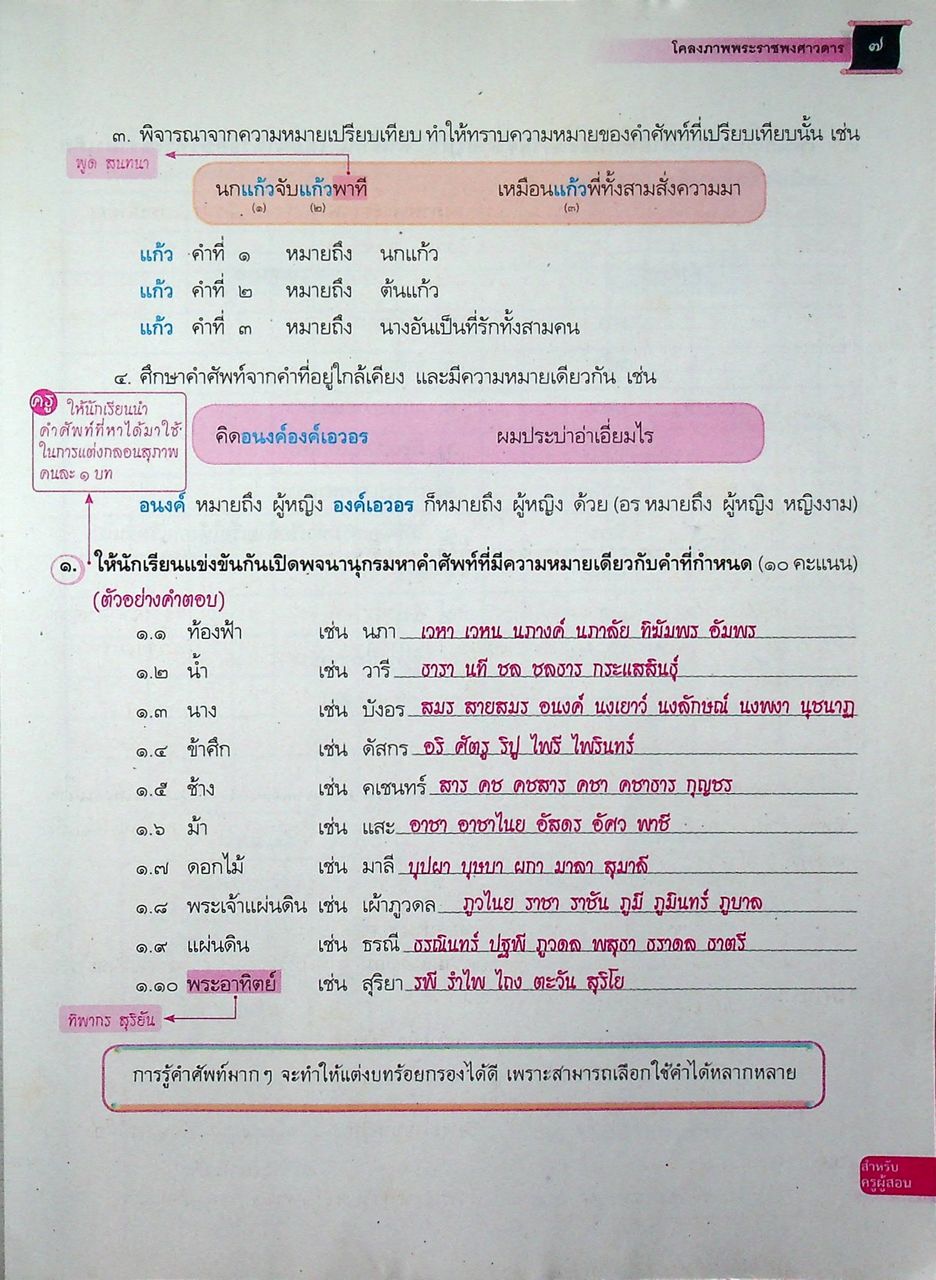 โคลงภาพพระราชพงศาวดาร ๗
๓. พิจารณาจากความหมายเปรียบเทียบ ทำให้ทราบความหมายของคำศัพท์ที่เปรียบเทียบนั้น เช่น
พูด สนทนา
นกแก้วจับแก้วพาที เหมือนแก้วพี่ทั้งสามสั่งความมา
(๑) (๒) (๓)
แก้ว คำที่ ๑ หมายถึง นกแก้ว
แก้ว คำที่ ๒ หมายถึง ต้นแก้ว
แก้ว คำที่ ๓ หมายถึง นางอันเป็นที่รักทั้งสามคน
๔. ศึกษาคำศัพท์จากคำที่อยู่ใกล้เคียง และมีความหมายเดียวกัน เช่น
ครู ให้นักเรียนนำ
คำศัพท์ที่หาได้มาใช้
ในการแต่งกลอนสุภาพ
คนละ ๑ บท
คิดอนงค์องค์เอวอร ผมประบ่าอ่าเอี่ยมไร
อนงค์ หมายถึง ผู้หญิง องค์เอวอร ก็หมายถึง ผู้หญิง ด้วย (อร หมายถึง ผู้หญิง หญิงงาม)
๑. ให้นักเรียนแข่งขันกันเปิดพจนานุกรมหาคำศัพท์ที่มีความหมายเดียวกับคำที่กำหนด (๑๐ คะแนน)
(ตัวอย่างคำตอบ)
๑.๑ ท้องฟ้า เช่น นภา เวหา เวหน นภางค์ นภาลัย ทิฆัมพร อัมพร
๑.๒ น้ำ เช่น วารี ธารา นที ชล ชลธาร กระแสสินธุ์
๑.๓ นาง เช่น บังอร สมร สายสมร อนงค์ นงเยาว์ นงลักษณ์ นงพงา นุชนาฏ
๑.๔ ข้าศึก เช่น ดัสกร อริ ศัตรู ริปู ไพรี ไพรินทร์
๑.๕ ช้าง เช่น คเชนทร์ สาร คช คชสาร คชา คชาธาร กุญชร
๑.๖ ม้า เช่น แสะ อาชา อาชาไนย อัสดร อัศว พาชี
๑.๗ ดอกไม้ เช่น มาลี บุปผา บุษบา ผกา มาลา สุมาลี
๑.๘ พระเจ้าแผ่นดิน เช่น เผ้าภูวดล ภูวไนย ราชา ราชัน ภูมี ภูมินทร์ ภูบาล
๑.๙ แผ่นดิน เช่น ธรณี ธรณินทร์ ปฐพี ภูวดล พสุธา ธราดล ธาตรี
๑.๑๐ พระอาทิตย์ เช่น สุริยา รพี รำไพ ไถง ตะวัน สุริโย
ทิพากร สุริยัน
การรู้คำศัพท์มาก ๆ จะทำให้แต่งบทร้อยกรองได้ดี เพราะสามารถเลือกใช้คำได้หลากหลาย
สำหรับ
ครูผู้สอน